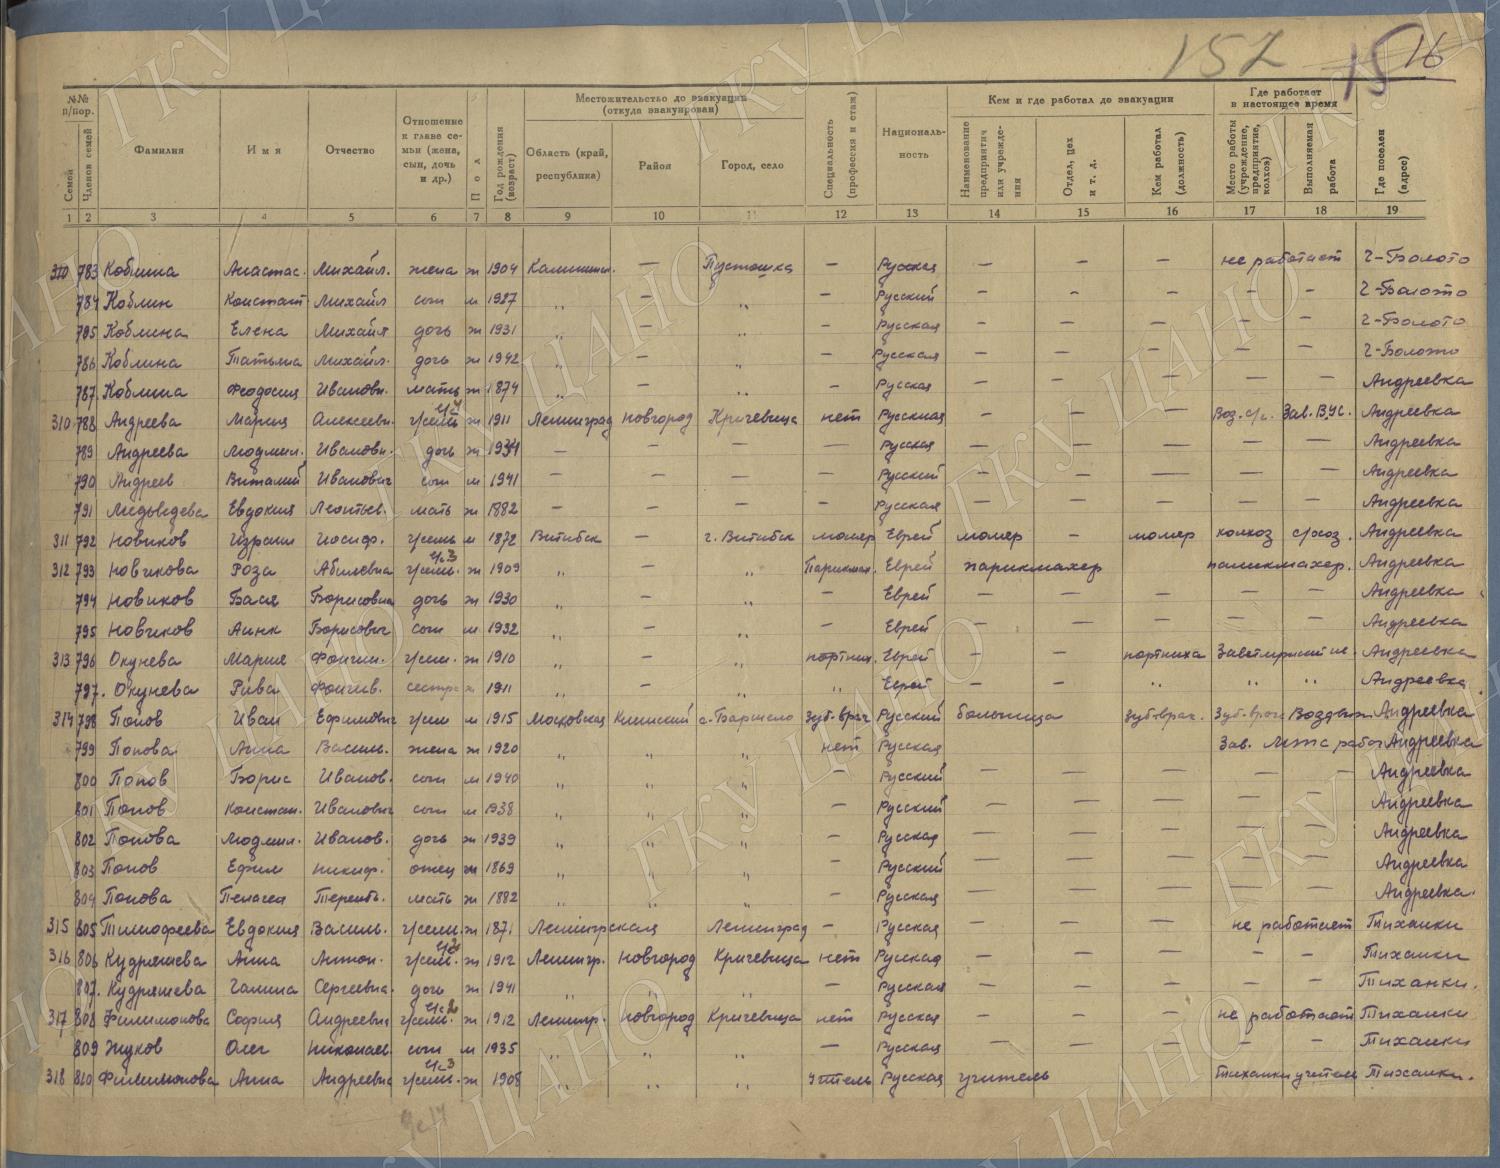 157 15 16
№№ п/пор.
Семей
Членов семей
Фамилия
Имя
Отчество
Отношение к главе семьи (жена, сын, дочь и др.)
Пол
Год рождения (возраст)
Местожительство до эвакуации (откуда эвакуирован)
Область (край, республика)
Район
Город, село
Специальность (профессия и стаж)
Националь-ность
Кем и где работал до эвакуации
Наименование предприятия или учреждения
Отдел, цех и т. д.
Кем работал (должность)
Где работает в настоящее время
Место работы (учреждение, предприятие, колхоз)
Выполняемая работа
Где поселен (адрес)
1 2 3 4 5 6 7 8 9 10 11 12 13 14 15 16 17 18 19
310 783 Коблина Анастас. Михайл. жена ж 1904 Калинин. — Пустошка — Русская — — — не работает Ч-Болото
784 Коблин Констант. Михайл сын м 1927 „ — „ — Русский — — — — — Ч-Болото
785 Коблина Елена Михайл дочь ж 1931 „ — „ — Русская — — — — — Ч-Болото
786 Коблина Татьяна Михайл. дочь ж 1942 „ — „ — Русская — — — — — Ч-Болото
787 Коблина Феодосия Ивановн. мать ж 1874 „ — „ — Русская — — — — — Андреевка
310 788 Андреева Мария Алексеевн. г/семьи ч.4 ж 1911 Ленинград Новгород Кричевица нет Русская — — — Воз. с/с. Зав. ВУС. Андреевка
789 Андреева Людмил. Ивановн. дочь ж 1934 — — — — Русская — — — — — Андреевка
790 Андреев Виталий Иванович сын м 1941 — — — — Русский — — — — — Андреевка
791 Медведева Евдокия Леонтьев. мать ж 1882 — — — — Русская — — — — — Андреевка
311 792 Новиков Израил Иосиф. г/семь м 1872 Витебск — г. Витебск маляр Еврей маляр — маляр колхоз с/хоз. Андреевка
312 793 Новикова Роза Абрамовна г/семи. ч.3 ж 1909 „ — „ Парикмах. Еврей парикмахер парикмахер. Андреевка
794 Новиков Бася Борисовна дочь ж 1930 „ — „ — Еврей — — — — — Андреевка
795 Новиков Аинк Борисович сын м 1932 „ — „ — Еврей — — — — — Андреевка
313 796 Окунева Мария г/сем. ж 1910 „ — „ портних. Еврей — — портниха Андреевка
797. Окунева Рива сестра ж 1911 „ — „ „ Еврей — — „ „ „ Андреевка
314 798 Попов Иван Ефимович г/сем м 1915 Московская Клинский зуб-врач Русский больница зуб-врач. Зуб-врач Воздвиж. Андреевка
799 Попова Анна Василь. жена ж 1920 „ „ „ нет Русская Зав. работ Андреевка
800 Попов Борис Иванов. сын м 1940 „ „ „ — Русский — — — — — Андреевка
801 Попов Констан. Иванович сын м 1938 „ „ „ — Русский — — — — — Андреевка
802 Попова Людмил. Иванов. дочь ж 1939 „ „ „ — Русская — — — — — Андреевка
803 Попов Ефим Никиф. отец м 1869 „ „ „ — Русский — — — — — Андреевка
804 Попова Пелагея Терентьев. мать ж 1882 „ „ „ — Русская — — — — — Андреевка.
315 805 Тимофеева Евдокия Василь. г/семи. ж 1871 Ленинградская Ленинград — Русская — — — не работает Тиханки
316 806 Кудряшева Анна Антон. г/семи. ч.2 ж 1912 Ленингр. Новгород Кричевица нет Русская — — — — — Тиханки
807. Кудряшева Галина Сергеевна. дочь ж 1941 „ „ „ — Русская — — — — — Тиханки.
317 808 Филимонова София Андреевна г/семи. ч.2 ж 1912 Ленингр. Новгород Кричевица нет Русская — — — не работает Тиханки
809 Жуков Олег Николаев. сын м 1935 „ „ „ — Русская — — — — — Тиханки
318 810 Филимонова Анна Андреевна г/семи. ч.3 ж 1908 „ „ „ учитель Русская учитель Тиханки учитель Тиханки.
ГКУ ЦАНО